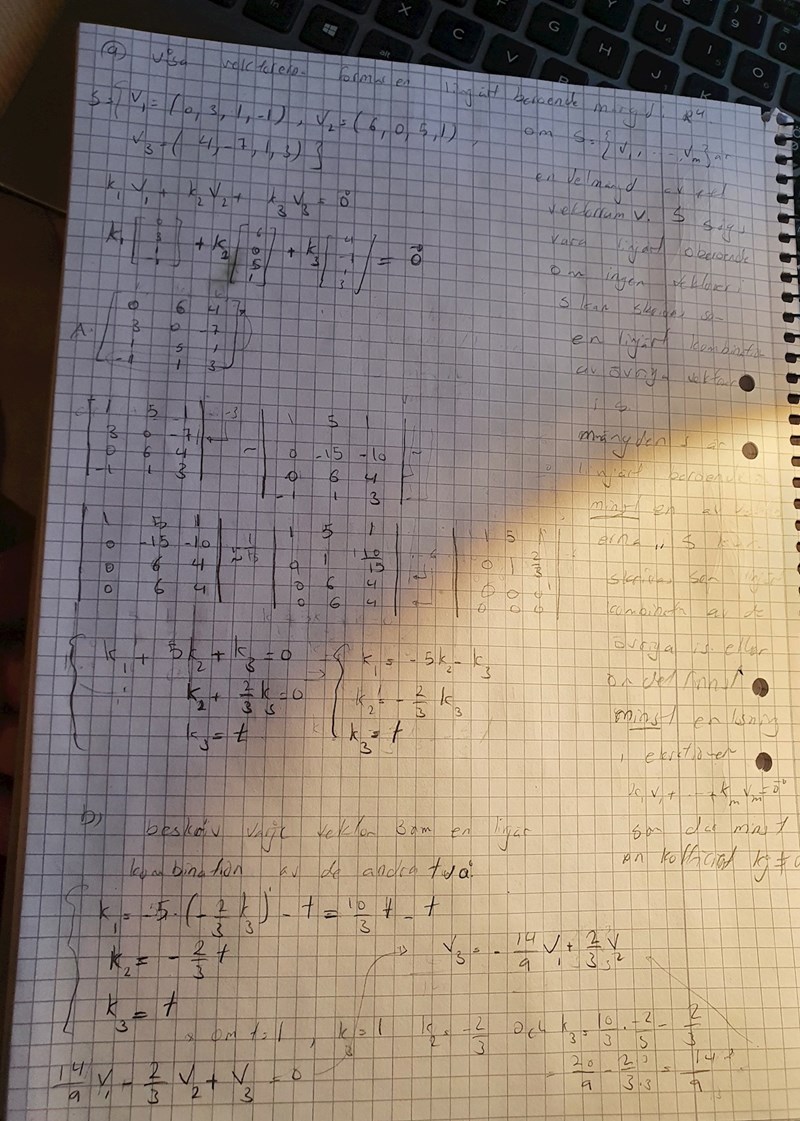 a) visa vektorerna formar en linjärt beroende mängd. R4
S={ V1=(0,3,1,-1), V2=(6,0,5,1),
V3=(4,-7,1,3)}
k1 V1 + k2 V2 + k3 V3 = 0
k1 [0 3 1 -1] + k2 [6 0 5 1] + k3 [4 -7 1 3] = 0
A.
0 6 4
3 0 -7
1 5 1
-1 1 3
1 5 1 -3
3 0 -7
0 6 4
-1 1 3
~
1 5 1
0 -15 -10
0 6 4
-1 1 3
~
1 5 1
0 -15 -10
0 6 4
0 6 4
1 5 1
0 1 10/15
0 6 4
0 6 4
1 5 1
0 1 2/3
0 0 0
0 0 0
k1 + 5k2 + k3 = 0 → k1 = -5k2 - k3
k2 + 2/3 k3 = 0 k2 = -2/3 k3
k3 = t k3 = t
om S={V1, ... Vm} är
en delmängd av
vektorrum V. S sägs
vara linjärt oberoende
om ingen vektor i
S kan skrivas som
en linjärt kombination
av övriga vektor
i S.
mängden S är
linjärt beroende
minst en av
S kan
skrivas som
combination av de
övriga i S eller
om det finns
minst en lösning
i ekvationen
k1 V1 + ... + km Vm = 0
som där minst
en kofficient kj ≠ 0
b) beskriv varje vektor som en linjär
kombination av de andra två.
k1 = -5·(-2/3 k3) - t = 10/3 t - t
k2 = -2/3 t
k3 = t
V3 = -14/9 V1 + 2/3 V2
om t=1, k3=1 k2=-2/3 och k3=10/3 · 2/3 - 2/3
= 20/9 - 2·3/3·3 = 14/9
14/9 V1 - 2/3 V2 + V3 = 0